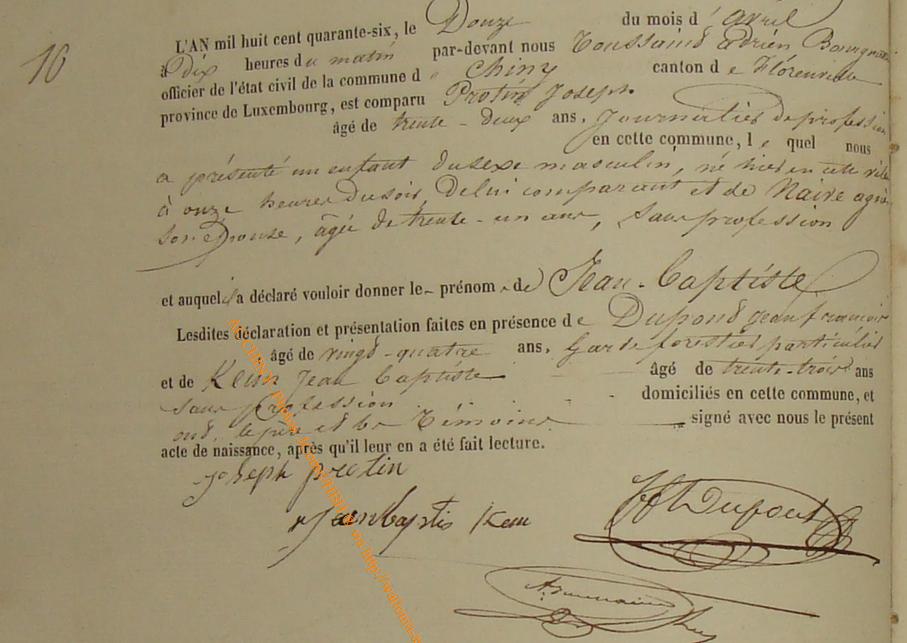 16
L'AN mil huit cent quarante-six, le Douze du mois d'avril
à Dix heures du matin par-devant nous Toussaint adrien
officier de l'état civil de la commune d chiny canton de Florenville
province de Luxembourg, est comparu Protin Joseph
âgé de trente-deux ans, Journalier de profession
en cette commune, lequel nous
a présenté un enfant du sexe masculin, né hier en cette
à onze heures du soir De lui comparant et de Naive
son Epouse, âgée de trente-un ans, sans profession
et auquel il a déclaré vouloir donner le prénom de Jean-Baptiste
Lesdites déclaration et présentation faites en présence de Dupond jean francois
âgé de vingt-quatre ans, Garde forestier particulier
et de Jean Baptiste âgé de trente-trois ans
sans profession domiciliés en cette commune, et
ont, le père et les Témoins signé avec nous le présent
acte de naissance, après qu'il leur en a été fait lecture.
joseph protin
jean baptis
Dupont